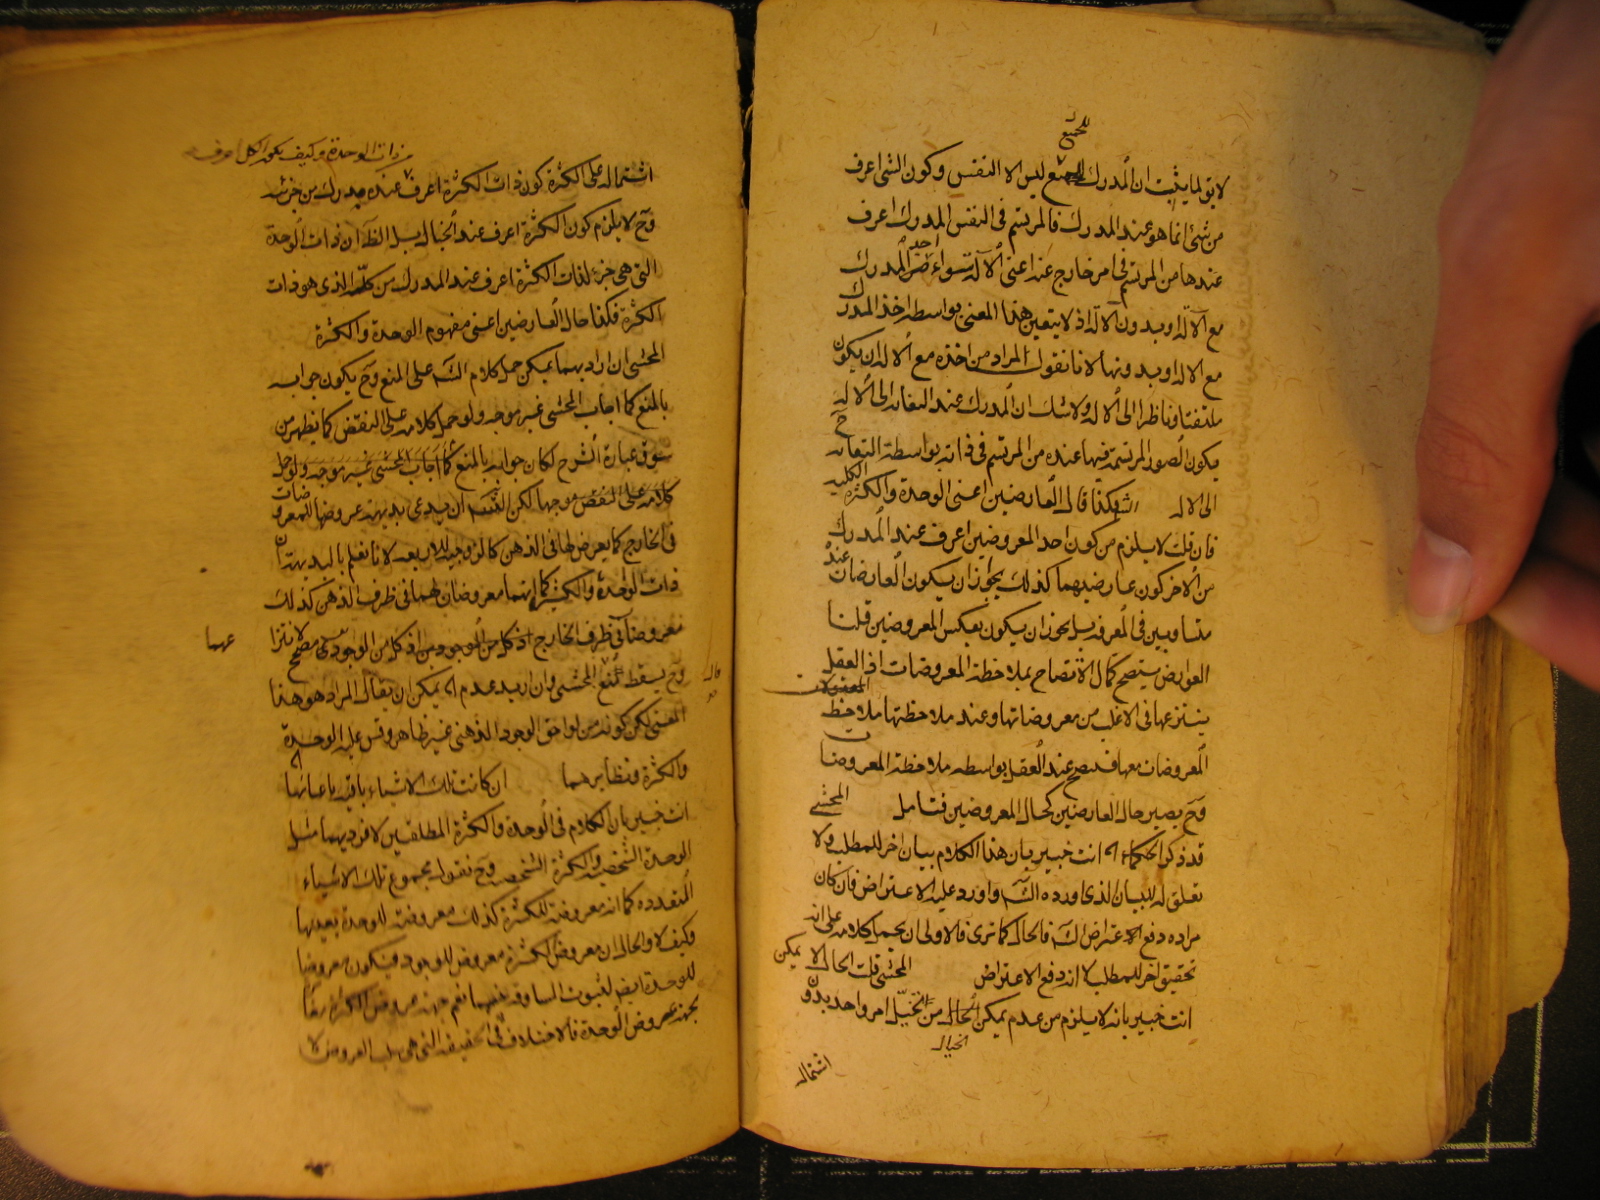 للجميع
لا يق لما يثبت ان المدرك للجميع ليس الا النفس وكون الشئ اعرف
من شئ انما هو عند المدرك فالمرتسم فى النفس المدرك اعرف
عندها من المرتسم فى امر خارج عنها اعنى الآلة سواء اخذ المدرك
مع الآلة او بدون الآلة اذ لا يتعين هذا المعنى بواسطة اخذ المدرك
مع الالة او بدونها لانا نقول المراد من اخذه مع الالة ان يكون
ملتفتا وناظرا الى الالة ولا شك ان المدرك عند التفاته الى الالة ح
يكون الصور المرتسمة فيها عنده من المرتسم فى ذاته بواسطة التفاته
الى الالة فكذا قال العارضين اعنى الوحدة والكثرة الكلية
فان قلت لا يلزم من كون احد المعروضين اعرف عند المدرك
من الاخر كون عارضيهما كذلك يجوز ان يكون العارضان عنده
متساويين فى المعرفة بل يجوز ان يكون بعكس المعروضين قلنا
العوارض يتضح كمال الاتضاح بملاحظة المعروضات اذ العقل
ينتزعها فى الاغلب من معروضاتها وعند ملاحظتها ملاحظ
المعروضات معها فيتضح عند العقل بواسطة ملاحظة المعروضات
وح يصير حال العارضين كحال المعروضين فتامل المحشى
قد ذكر الحكماء اه انت خبير بان هذا الكلام بيان اخر للمطلب ولا
تعلق له للبيان الذى اورده الش واورد عليه الاعتراض فان كان
مراده دفع الاعتراض الش فالحال كما ترى فالاولى ان يحمل كلامه على انه
تحقيق اخر للمطلب لا انه دفع الاعتراض المحشى قلت الحال لا يمكن
انت خبير بانه لا يلزم من عدم يمكن الخيال من تخيل امر واحد بدون
الخيال
اشتماله
من ذات الوحدة وكيف يكون الكل اعرف
اشتماله على الكثرة كون ذات الكثرة اعرف عنده مدرك من جزئه
وح لا يلزم كون الكثرة اعرف عند الخيال بل الظ ان ذات الوحدة
التى هى جزء لذات الكثرة اعرف عند المدرك من كله الذى هو ذات
الكثرة فكذا حال العارضين اعنى مفهوم الوحدة والكثرة
المحشى ان اراد بهما يمكن حمل كلام الش على المنع وح يكون جوابه
بالمنع كما اجاب المحشى غير موجه ولو حمل كلامه على النقض كما يظهر من
سوق عبارة الشرح لكان جوابه بالمنع كما اجاب المحشى غير موجه ولو حمل
كلامه على النقض موجها لكن للش ان يدعى بديهة عروضها للمعروضات
فى الخارج كما يعرض لها فى الذهن كالزوجية للاربعة لانا نعلم بالبديهة ان
ذات الوحدة والكثرة كما انهما معروضان لهما فى ظرف الذهن كذلك
معروضا فى ظرف الخارج اذ كل من الوجودين مصحح لانتزا
عهما
وح يسقط منع المحشى وان اريد عدم اه يمكن ان يقال المراد هو هذا
المعنى لكن كونه من لواحق الوجود الذهنى غير ظاهر وقس عليه الوحدة
والكثرة ونظايرهما ان كانت تلك الاشياء باقية باعيانها
انت خبير بان الكلام فى الوحدة والكثرة المطلقتين لا فرديهما مثل
الوحدة الشخصية والكثرة الشخصية وح نقول مجموع تلك الاشياء
المتعددة كما انه معروضة للكثرة كذلك معروضة للوحدة بعينها
وكيف لا والحال ان معروض الكثرة معروض للوجود فيكون معروضا
للوحدة ايض لثبوت المساوقة بينهما نعم جهة عروض الكثرة
بجهة عروض الوحدة فالاختلاف فى الحيثية التى هى سبب العروض لا